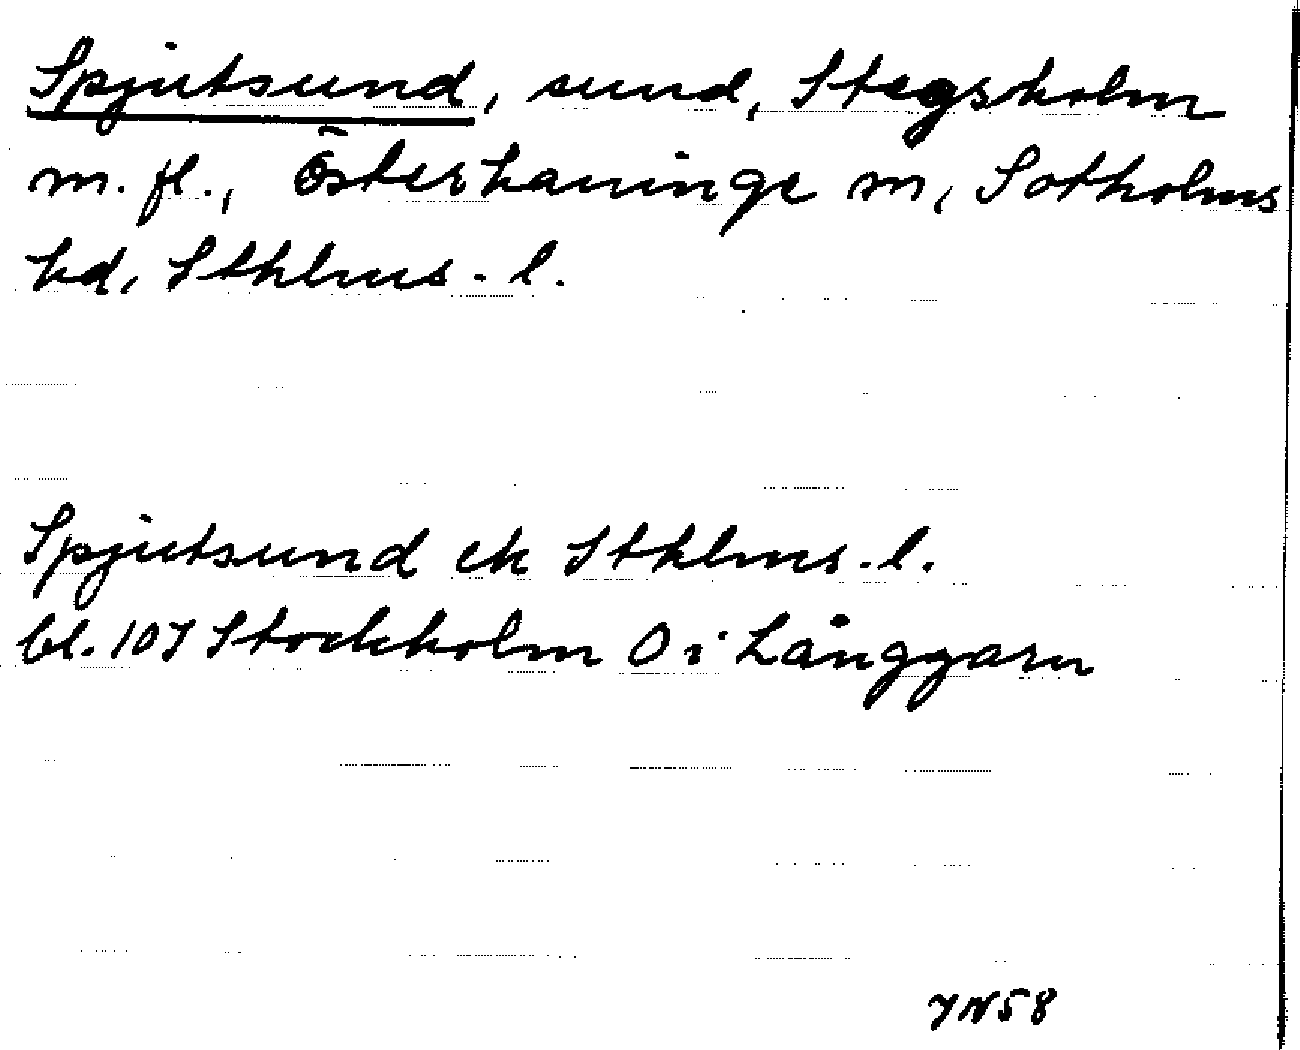 Spjutsund, sund, Stegsholm
m. fl., Österhaninge sn, Sotholms
hd, Sthlms. l.
Spjutsund ek Sthlms. l.
bl. 107 Stockholm O i Långgarn
YN58